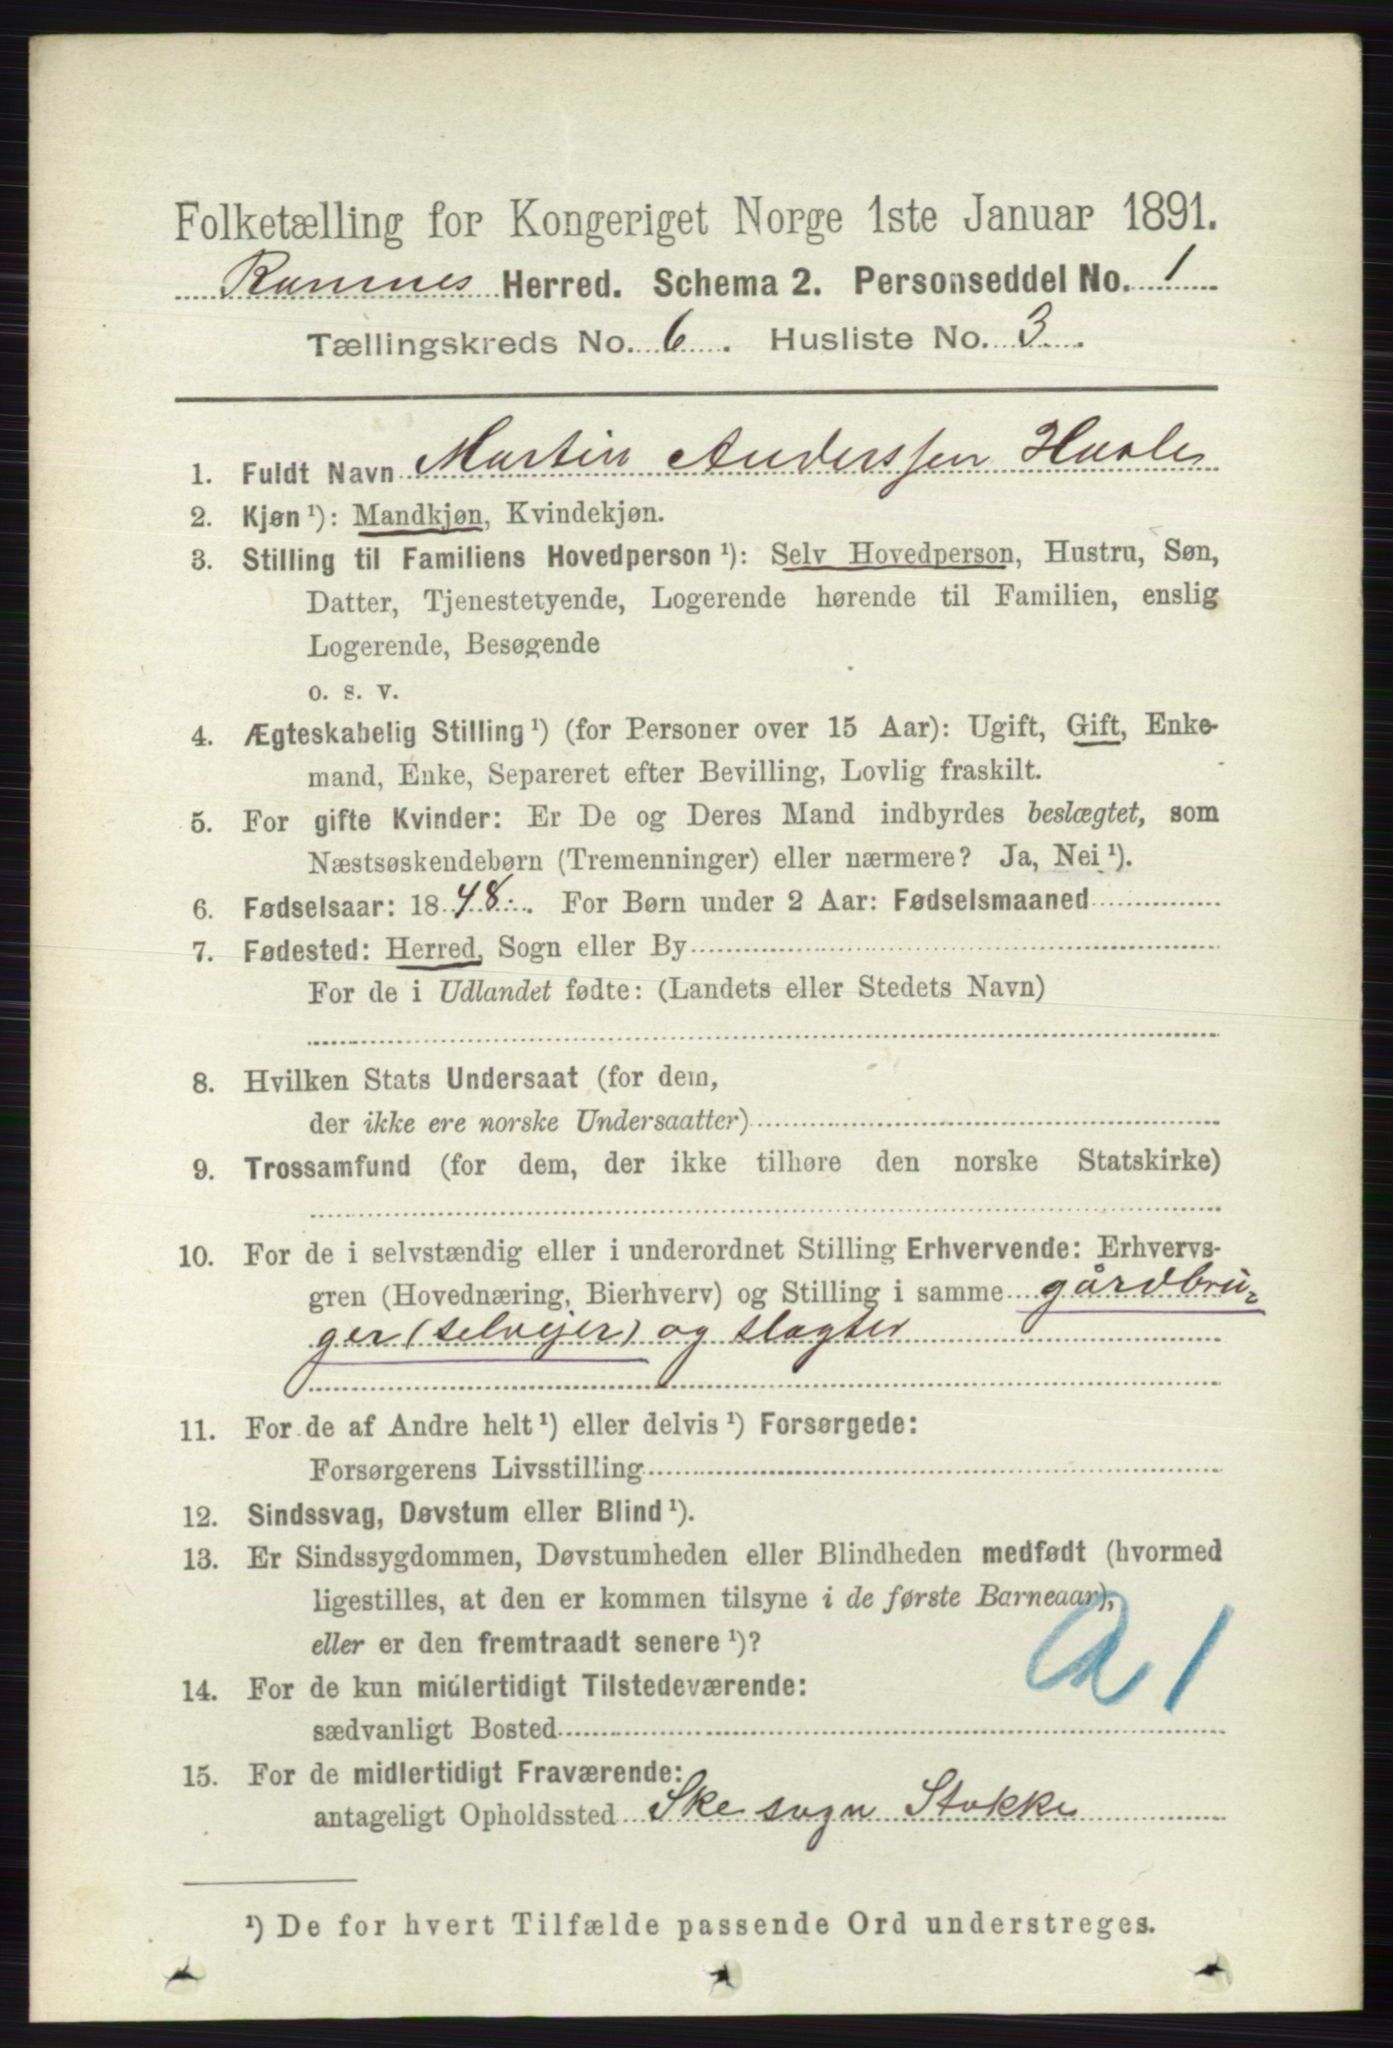 Folketælling for Kongeriget Norge 1ste Januar 1891.
Ramnes Herred. Schema 2. Personseddel No. 1
Tællingskreds No. 6. Husliste No. 3.
1. Fuldt Navn Martin Anderssen Haslе
2. Kjøn ¹): Mandkjøn, Kvindekjøn.
3. Stilling til Familiens Hovedperson ¹): Selv Hovedperson, Hustru, Søn,
Datter, Tjenestetyende, Logerende hørende til Familien, enslig
Logerende, Besøgende
o. s. v.
4. Ægteskabelig Stilling ¹) (for Personer over 15 Aar): Ugift, Gift, Enke-
mand, Enke, Separeret efter Bevilling, Lovlig fraskilt.
5. For gifte Kvinder: Er De og Deres Mand indbyrdes beslægtet, som
Næstsøskendebørn (Tremenninger) eller nærmere? Ja, Nei ¹).
6. Fødselsaar: 1848. For Børn under 2 Aar: Fødselsmaaned
7. Fødested: Herred, Sogn eller By
For de i Udlandet fødte: (Landets eller Stedets Navn)
8. Hvilken Stats Undersaat (for dem,
der ikke ere norske Undersaatter)
9. Trossamfund (for dem, der ikke tilhøre den norske Statskirke)
10. For de i selvstændig eller i underordnet Stilling Erhvervende: Erhvervs-
gren (Hovednæring, Bierhverv) og Stilling i samme gårdbru-
ger (selvejer) og slagter
11. For de af Andre helt ¹) eller delvis ¹) Forsørgede:
Forsørgerens Livsstilling
12. Sindssvag, Døvstum eller Blind ¹).
13. Er Sindssygdommen, Døvstumheden eller Blindheden medfødt (hvormed
ligestilles, at den er kommen tilsyne i de første Barneaar),
eller er den fremtraadt senere ¹)?
a 1
14. For de kun midlertidigt Tilstedeværende:
sædvanligt Bosted
15. For de midlertidigt Fraværende:
antageligt Opholdssted Ske sogn Stokke
¹) De for hvert Tilfælde passende Ord understreges.